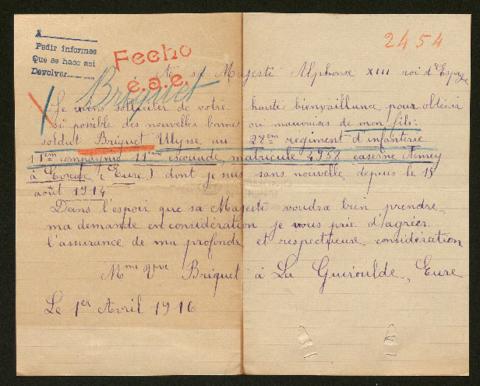 A
Pedir informes
Que se hace así
Devolver
Fecho
e.a.e.
2454
Briquet
A sa Majesté Alphonse XIII roi d'Espagne
Je viens solliciter de votre haute bienveillance pour obtenir
si possible des nouvelles bonnes ou mauvaises de mon fils:
soldat Briquet Ulysse au 28eme régiment d'infanterie
11eme compagnie 11eme escouade matricule 4958 caserne
à Evreux (Eure) dont je suis sans nouvelle depuis le 15
août 1914
Dans l'espoir que sa Majesté voudra bien prendre
ma demande en considération je vous prie d'agréer
l'assurance de ma profonde et respectueuse considération
Mme Vve Briquet à La Guéroulde, Eure
Le 1er Avril 1916